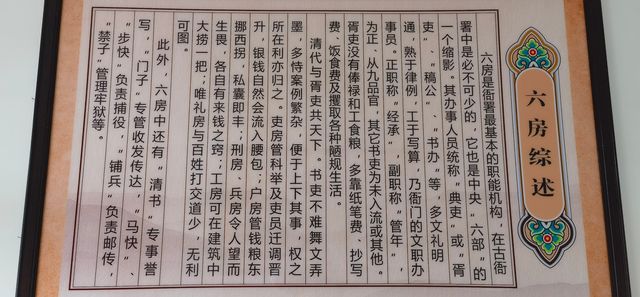 六房综述
六房是衙署最基本的职能机构，在古衙
署中是必不可少的，它也是中央"六部"的
一个缩影。其办事人员统称"典吏"或"胥
吏"、"稿公"、"书办"等，多文礼明
通，熟于律例，工于写算，乃衙门的文职办
事员。正职称"经承"，副职称"管年"，
为正、从九品官，其它书吏为未入流或其他。
胥吏没有俸禄和工食粮，多靠纸笔费、抄写
费、饭食费及攫取各种陋规生活。
清代与胥吏共天下。书吏不难舞文弄
墨，多恃案例繁杂，便于上下其事，权之
所在利亦归之。吏房管科举及吏员迁调晋
升，银钱自然会流入腰包；户房管钱粮东
挪西拐，私囊即丰；刑房、兵房令人望而
生畏，各自有来钱之窍；工房可在建筑中
大捞一把；唯礼房与百姓打交道少，无利
可图。
此外，六房中还有"清书"专事誊
写，"门子"专管收发传达，"马快"、
"步快"负责捕役，"铺兵"负责邮传
"禁子"管理牢狱等。